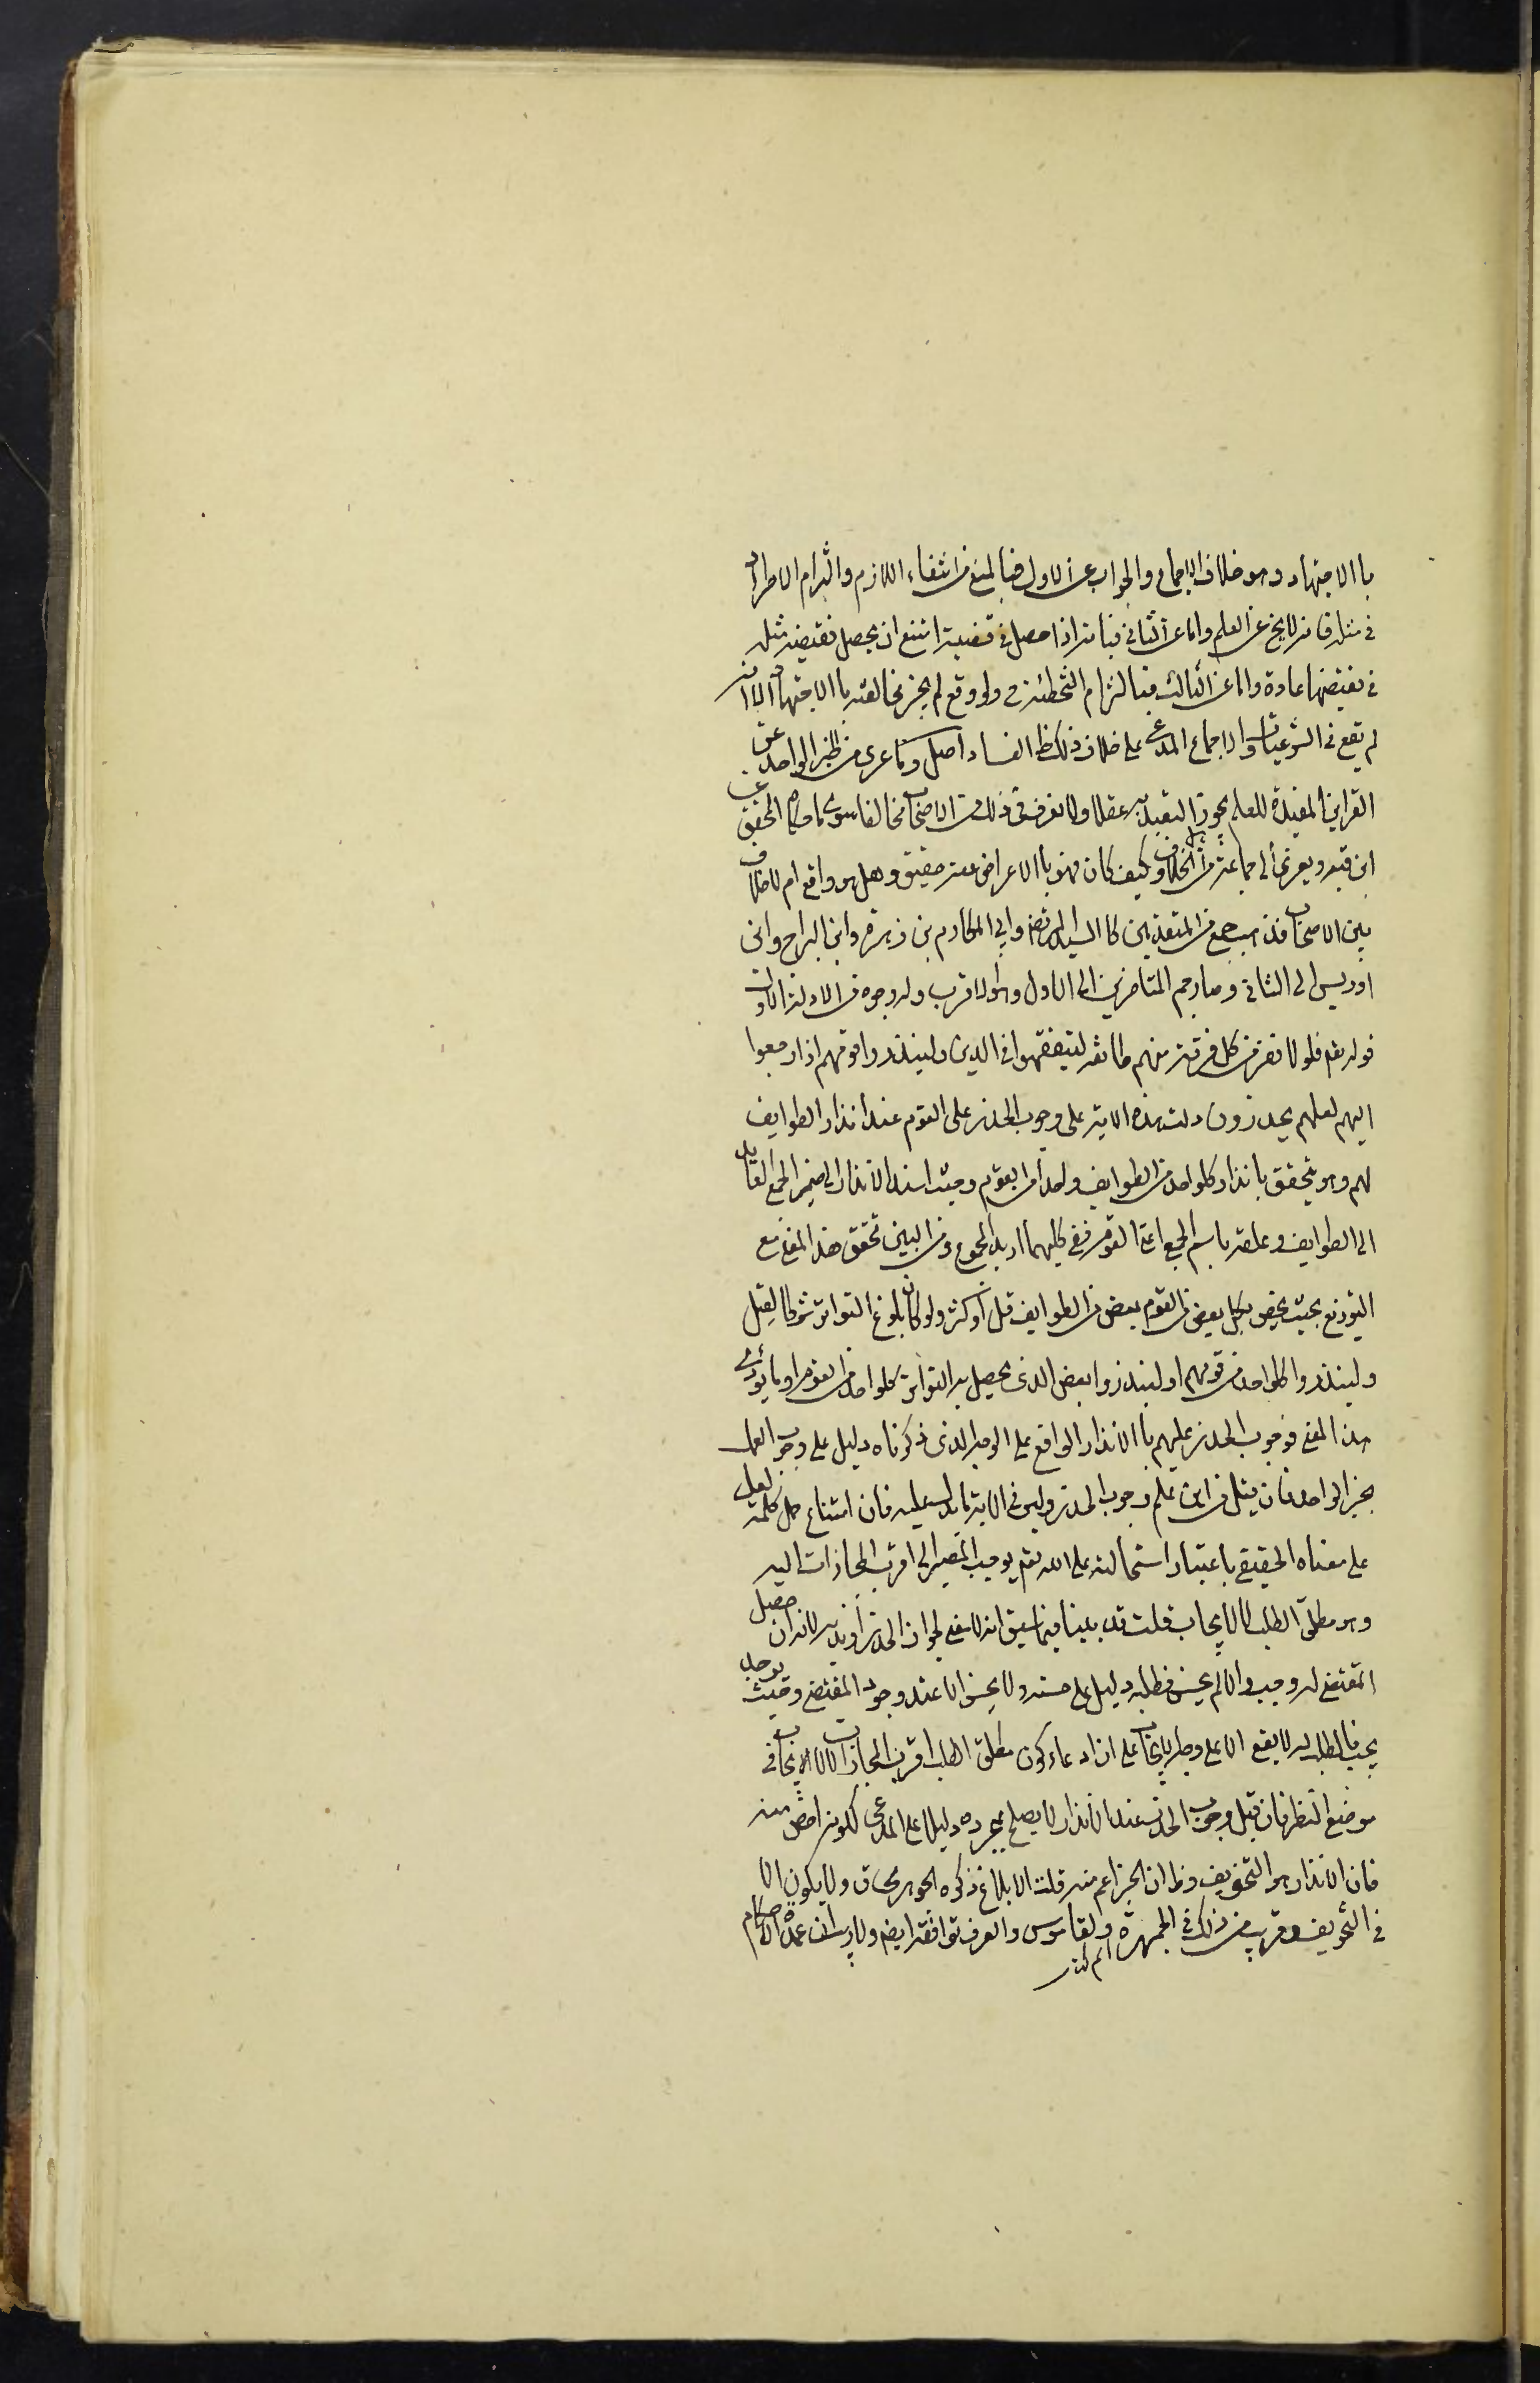 باالاجتهاد وهو خلاف الاجماع والجواب عن الاول فبالمنع من انتفاء اللازم والتزام الاطراد
فى مثله فانه لا يخ عن العلم واما عن الثانى فبانه اذا حصل فى قضية امتنع ان يحصل نقيضه مثله
فى نقيضها عادة واما عن الثالث فبالتزام التخطئة ولو وقع لم يجز مخالفته باالاجتهاد الا انه
لم يقع فى الشرعيات والاجماع المدعى على خلاف ذلك ظ الفساد اصل وما عرى من الخبر الواحد عن
القراين المفيدة للعلم يجوز التعبد به عقلا ولا نعرف فى ذلك من الاصحاب مخالفا سوى ما حكاه المحقق عن
ابن قبه ويعزى الى جماعة من الخلاف وكيف كان فهو باالاعراض عنه حقيق وهل هو واقع ام لا خلاف
بين الاصحاب فذهب جمع من المتقدمين كاالسيد المرتضى وابى المكارم بن زهره وابن البراج وابن
ادريس الى الثانى وصار جم المتاخرين الى الاول وهو الاقرب وله وجوه من الادلة الاول
قوله تعم فلولا نفر من كل فرقة منهم طائفه ليتفقهوا فى الدين ولينذروا قومهم اذا رجعوا
اليهم لعلهم يحذرون دلت هذه الاية على وجوب الحذر على القوم عند انذار الطوايف
لهم وهو يتحقق بانذار كلواحد من الطوايف واحدا من القوم وحيث اسند الانذار الى ضمير الجمع العايد
الى الطوايف وعلقه باسم الجمع اعنى القوم ففى كليهما اريد المجموع ومن البين تحقق هذا المعنى مع
التوزيع بحيث يختص بكل بعض من القوم بعض من الطوايف قل او كثر ولو كان بلوغ التواتر شرطا لقيل
ولينذروا كلواحد من قومهم او لينذروا بعض الذى يحصل به التواتر كلواحد من القوم او ما يؤدى
هذا المعنى فوجوب الحذر عليهم باالانذار الواقع على الوجه الذى ذكرناه دليل على وجوب العمل
بخبر الواحد فان قيل من اين علم وجوب الحذر وليس فى الاية ما يدل عليه فان امتناع حمل كلمة لعل
على معناه الحقيقى باعتبار استحالته على الله تعم يوجب المصير الى اقرب المجازات اليه
وهو مطلق الطلب لا الايجاب قلت قد بينا فيما سبق انه لا معنى لجواز الحذر او ندبه لانه ان حصل
المقتضى له وجب والا لم يحسن فطلبه دليل على حسنه ولا يحسن الا عند وجود المقتضى وحيث يوجد
يجب فالطلب له لا يقع الا على وجه الايجاب على ان ادعاء كون مطلق الطلب اقرب المجازات لا الايجاب فى
موضع النظر فان قيل وجوب الحذر عند الانذار لا يصلح بمجرده دليلا على المدعى لكونه اخص منه
فان الانذار هو التخويف وظ ان الخبر اعم منه قلت الابلاغ ذكره الجوهرى ق ولا يكون الا
فى التخويف وقريب من ذلك فى الجمهرة والقاموس والعرف توافقه ايض ولا ريب ان عمدة الاحكام